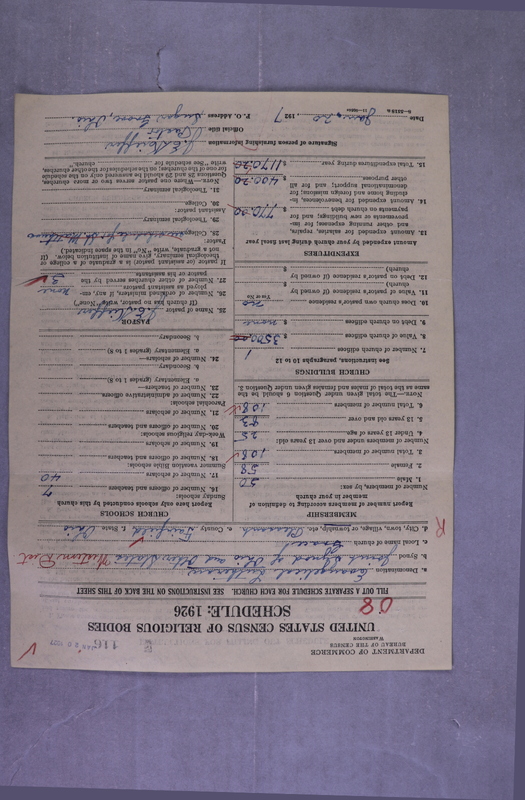 DEPARTMENT OF COMMERCE
BUREAU OF THE CENSUS
WASHINGTON
116
UNITED STATES CENSUS OF RELIGIOUS BODIES
SCHEDULE: 1926
80
FILL OUT A SEPARATE SCHEDULE FOR EACH CHURCH. SEE INSTRUCTIONS ON THE BACK OF THIS SHEET
a. Denomination Evangelical Lutheran
b. Synod Joint Synod of Ohio and Other States Western Dist
c. Local name of church
d. City, town, village, or township, etc. Pleasant e. County Fairfield f. State Ohio
R
MEMBERSHIP
Report number of members according to definition of member in your church
Number of members, by sex:
1. Male 50
2. Female 58
3. Total number of members 108
Number of members under and over 13 years old:
4. Under 13 years of age 25
5. 13 years old and over 83
6. Total number of members 108
NOTE.—The total given under Question 6 should be the same as the total of males and females given under Question 3.
CHURCH BUILDINGS
See instructions, paragraphs 10 to 12
7. Number of church edifices 1
8. Value of church edifices $ 3500.00
9. Debt on church edifices $ none
10. Does church own pastor's residence no
(Yes or No)
11. Value of pastor's residence (if owned by church) $
12. Debt on pastor's residence (if owned by church) $
EXPENDITURES
Amount expended by your church during last fiscal year
13. Amount expended for salaries, repairs, and other running expenses; for improvements or new buildings; and for payments on church debt $ 770.00
14. Amount expended for benevolences, including home and foreign missions; for denominational support; and for all other purposes $ 400.20
15. Total expenditures during year $ 1170.20
CHURCH SCHOOLS
Report here only schools conducted by this church
Sunday schools:
16. Number of officers and teachers 7
17. Number of scholars 40
Summer vacation Bible schools:
18. Number of officers and teachers
19. Number of scholars
Week-day religious schools:
20. Number of officers and teachers
21. Number of scholars
Parochial schools:
22. Number of administrative officers
23. Number of teachers—
a. Elementary (grades 1 to 8)
b. Secondary
24. Number of scholars—
a. Elementary (grades 1 to 8)
b. Secondary
PASTOR
25. Name of pastor
(If church has no pastor, write "None")
26. Number of ordained ministers, if any, employed as assistant pastors none
27. Number of other churches served by the pastor or his assistants 3
If pastor (or assistant pastor) is a graduate of a college or theological seminary, give name of institution below. (If not a graduate, write "No" in the space indicated.)
Pastor:
28. College
29. Theological seminary
Assistant pastor:
30. College
31. Theological seminary
NOTE.—Where one pastor serves two or more churches, Questions 28 and 29 should be answered only on the schedule for one of the churches; on the schedules for the other churches, write "See schedule for church."
Signature of person furnishing information
Official title Pastor
Date Jan. 20 1927 P. O. Address Sugar Grove, Ohio